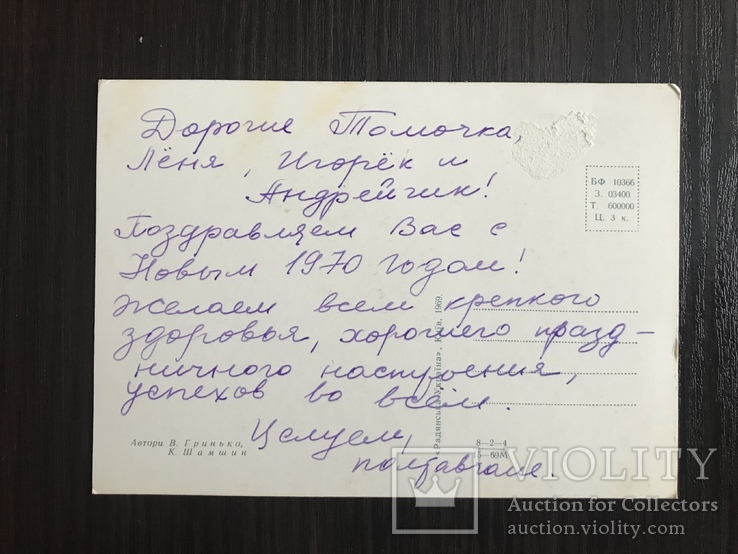 Дорогие Томочка,
Лёня, Игорёк и
Андрейчик!
Поздравляем Вас с
Новым 1970 годом!
Желаем всем крепкого
здоровья, хорошего празд-
ничного настроения,
успехов во всём.
Целуем,
полтавчане.
БФ 10366
З. 03400
Т. 600000
Ц. 3 к.
«Радянська Україна», Київ, 1969.
Автори В. Гринько,
К. Шамшин
8—2—4
5—69М
VIOLITY
Auction for Collectors
auction.violity.com